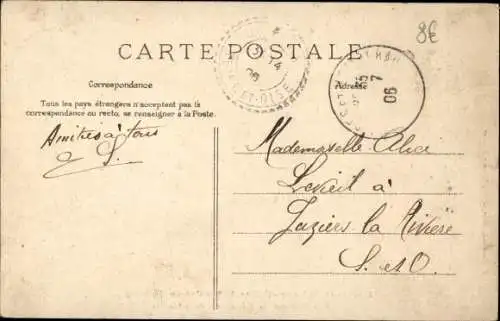 8€
CARTE POSTALE
Correspondance
Adresse
Tous les pays étrangers n'acceptent pas la
correspondance au recto, se renseigner à la Poste.
ET-OISE
06
25
7
06
Amitiés à tous
S.
Mademoiselle Alice
à
la Rivière
S. et O.